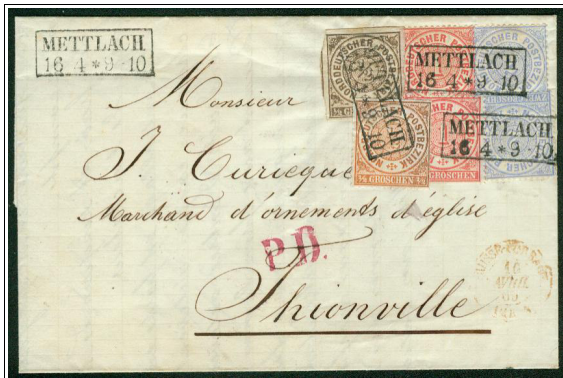 METTLACH
16 4 * 9-10
NORDDEUTSCHER POSTBEZIRK
METTLACH
16 4 * 9 10
METTLACH
16 4 * 9 10
POSTBEZIRK
1/2 GROSCHEN 1/2
GROSCHEN
Monsieur
J. Curicque
Marchand d'ornements d'église
P.D.
Thionville
16
AVRIL